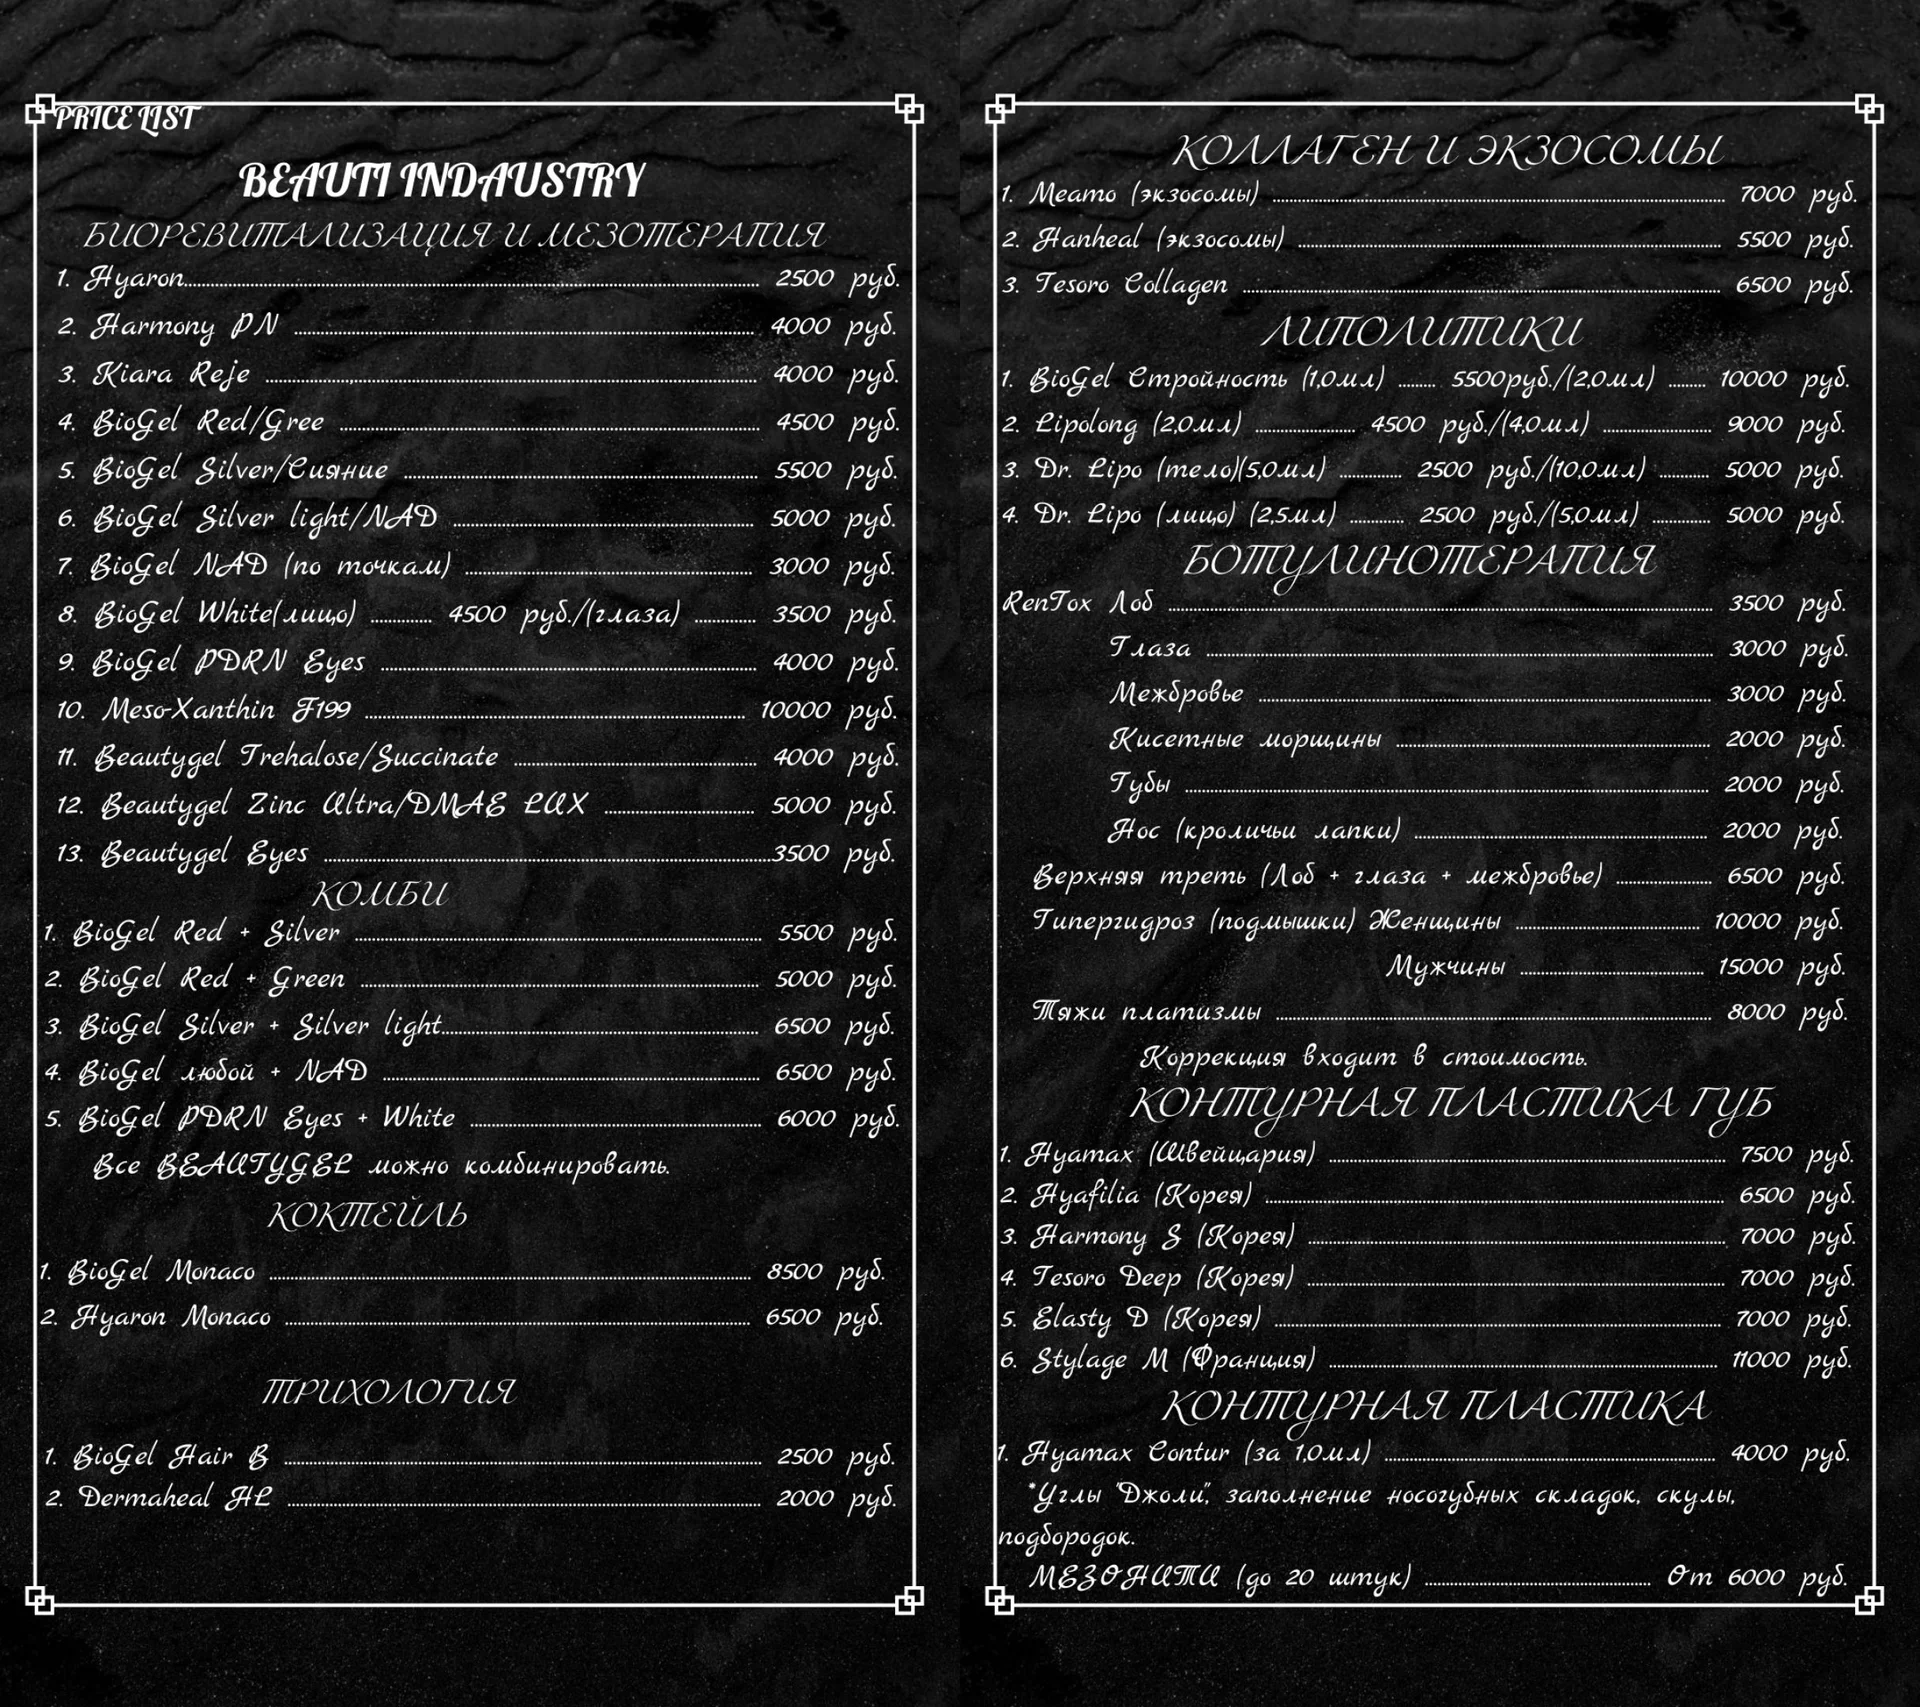 PRICE LIST
BEAUTI INDAUSTRY
БИОРЕВИТАЛИЗАЦИЯ И МЕЗОТЕРАПИЯ
1. Hyaron.......... 2500 руб.
2. Harmony PN .......... 4000 руб.
3. Kiara Reje .......... 4000 руб.
4. BioGel Red/Gree .......... 4500 руб.
5. BioGel Silver/Сияние .......... 5500 руб.
6. BioGel Silver light/NAD .......... 5000 руб.
7. BioGel NAD (по точкам) .......... 3000 руб.
8. BioGel White(лицо) .......... 4500 руб./(глаза) .......... 3500 руб.
9. BioGel PDRN Eyes .......... 4000 руб.
10. Meso-Xanthin F199 .......... 10000 руб.
11. Beautygel Trehalose/Succinate .......... 4000 руб.
12. Beautygel Zinc Ultra/DMAE LUX .......... 5000 руб.
13. Beautygel Eyes ..........3500 руб.
КОМБИ
1. BioGel Red + Silver .......... 5500 руб.
2. BioGel Red + Green .......... 5000 руб.
3. BioGel Silver + Silver light.......... 6500 руб.
4. BioGel любой + NAD .......... 6500 руб.
5. BioGel PDRN Eyes + White .......... 6000 руб.
Все BEAUTYGEL можно комбинировать.
КОКТЕЙЛЬ
1. BioGel Monaco .......... 8500 руб.
2. Hyaron Monaco .......... 6500 руб.
ТРИХОЛОГИЯ
1. BioGel Hair B .......... 2500 руб.
2. Dermaheal HL .......... 2000 руб.
КОЛЛАГЕН И ЭКЗОСОМЫ
1. Meamo (экзосомы) .......... 7000 руб.
2. Hanheal (экзосомы) .......... 5500 руб.
3. Tesoro Collagen .......... 6500 руб.
ЛИПОЛИТИКИ
1. BioGel Стройность (1,0мл) ....... 5500руб./(2,0мл) ....... 10000 руб.
2. Lipolong (2,0мл) .......... 4500 руб./(4,0мл) .......... 9000 руб.
3. Dr. Lipo (тело)(5,0мл) .......... 2500 руб./(10,0мл) .......... 5000 руб.
4. Dr. Lipo (лицо) (2,5мл) .......... 2500 руб./(5,0мл) .......... 5000 руб.
БОТУЛИНОТЕРАПИЯ
RenTox Лоб .......... 3500 руб.
Глаза .......... 3000 руб.
Межбровье .......... 3000 руб.
Кисетные морщины .......... 2000 руб.
Губы .......... 2000 руб.
Нос (кроличьи лапки) .......... 2000 руб.
Верхняя треть (Лоб + глаза + межбровье) .......... 6500 руб.
Гипергидроз (подмышки) Женщины .......... 10000 руб.
Мужчины .......... 15000 руб.
Тяжи платизмы .......... 8000 руб.
Коррекция входит в стоимость.
КОНТУРНАЯ ПЛАСТИКА ГУБ
1. Hyamax (Швейцария) .......... 7500 руб.
2. Hyafilia (Корея) .......... 6500 руб.
3. Harmony S (Корея) .......... 7000 руб.
4. Tesoro Deep (Корея) .......... 7000 руб.
5. Elasty D (Корея) .......... 7000 руб.
6. Stylage M (Франция) .......... 11000 руб.
КОНТУРНАЯ ПЛАСТИКА
1. Hyamax Contur (за 1,0мл) .......... 4000 руб.
*Углы "Джоли", заполнение носогубных складок, скулы,
подбородок.
МЕЗОНИТИ (до 20 штук) .......... От 6000 руб.